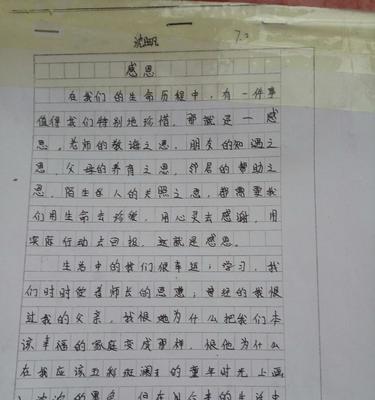 7.2
感恩
在我们的生命历程中，有一件事
值得我们特别地珍惜，那就是一感
恩。老师的教诲之恩，朋友的知遇之
恩，父母的养育之恩，邻居的帮助之
恩，陌生人的关照之恩，都需要我
们用生命去珍爱，用心灵去感谢，用
实际行动去回报，这就是感恩。
生活中的我们很幸运；学习，我
们时时受着师长的恩惠；曾经的我恨
过我的父亲，我恨她为什么把我们本
该幸福的家庭变成那样，恨他为什么
在我应该五彩斑斓的童年时光上画